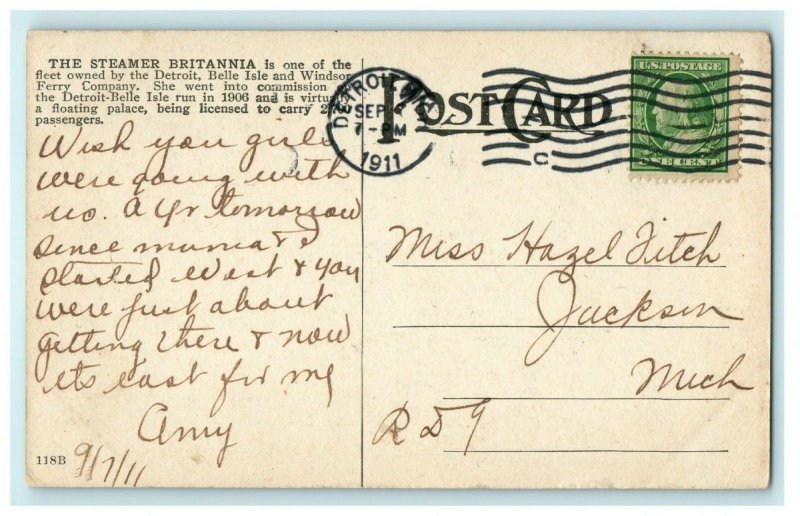 THE STEAMER BRITANNIA is one of the
fleet owned by the Detroit, Belle Isle and Windsor
Ferry Company. She went into commission
the Detroit-Belle Isle run in 1906 and is
a floating palace, being licensed to carry
passengers.
POST CARD
DETROIT, MICH
SEP
7-PM
1911
C
U.S. POSTAGE
ONE CENT
Wish you girls
were going with
us. A yr tomorrow
since mama & I
started West & you
were just about
getting there & now
its east for me
Amy
118B
9/7/11
Miss Hazel Fitch
Jackson
Mich
R D 9